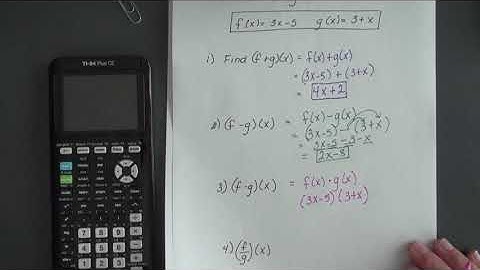 TI-84 Plus CE
f(x)= 3x-5 g(x)= 3+x
1) Find (f+g)(x) = f(x)+g(x)
= (3x-5) + (3+x)
= 4x+2
2) (f-g)(x) = f(x)-g(x)
= (3x-5) - (3+x)
= 3x-5-3-x
= 2x-8
3) (f·g)(x) = f(x)·g(x)
(3x-5)(3+x)
4) (f/g)(x)